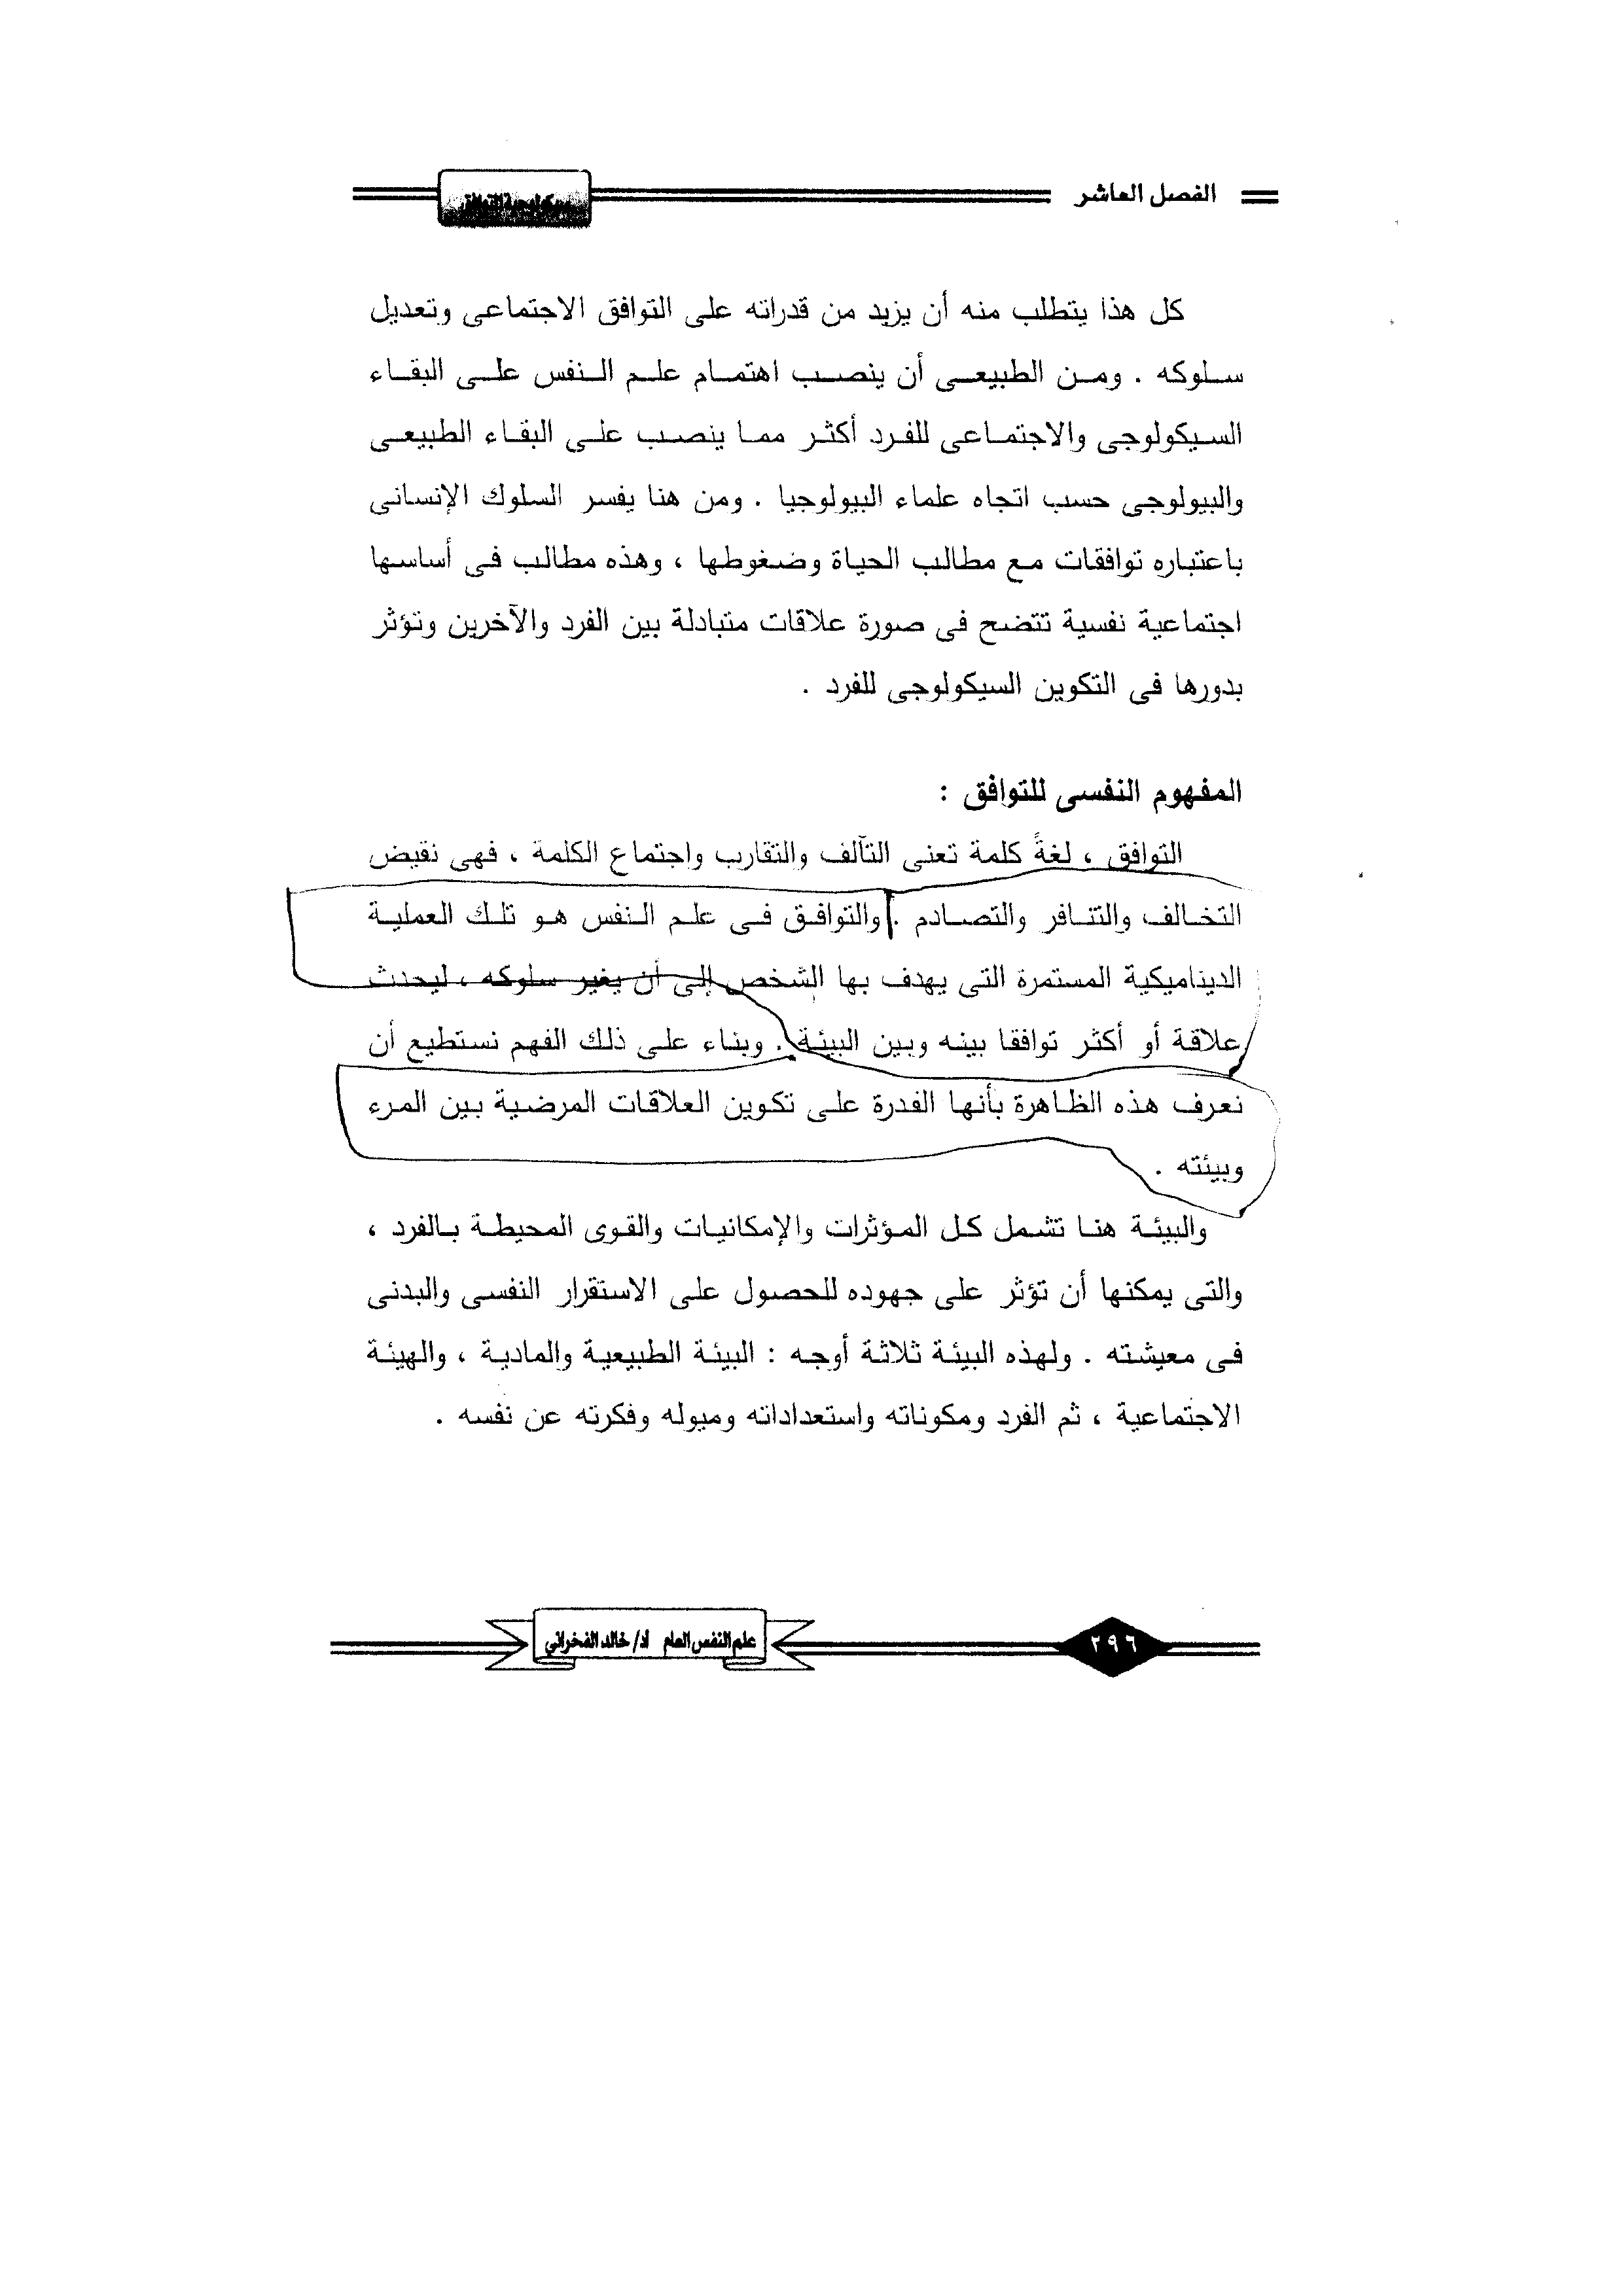 الفصل العاشر
كل هذا يتطلب منه أن يزيد من قدراته على التوافق الاجتماعى وتعديل
سلوكه . ومن الطبيعى أن ينصب اهتمام علم النفس على البقاء
السيكولوجى والاجتماعى للفرد أكثر مما ينصب على البقاء الطبيعى
والبيولوجى حسب اتجاه علماء البيولوجيا . ومن هنا يفسر السلوك الإنسانى
باعتباره توافقات مع مطالب الحياة وضغوطها ، وهذه مطالب فى أساسها
اجتماعية نفسية تتضح فى صورة علاقات متبادلة بين الفرد والآخرين وتؤثر
بدورها فى التكوين السيكولوجى للفرد .
المفهوم النفسى للتوافق :
التوافق ، لغةً كلمة تعنى التآلف والتقارب واجتماع الكلمة ، فهى نقيض
التخالف والتنافر والتصادم . والتوافق فى علم النفس هو تلك العملية
الديناميكية المستمرة التى يهدف بها الشخص إلى أن يغير سلوكه ، ليحدث
علاقة أو أكثر توافقا بينه وبين البيئة . وبناء على ذلك الفهم نستطيع أن
نعرف هذه الظاهرة بأنها القدرة على تكوين العلاقات المرضية بين المرء
وبيئته .
والبيئة هنا تشمل كل المؤثرات والإمكانيات والقوى المحيطة بالفرد ،
والتى يمكنها أن تؤثر على جهوده للحصول على الاستقرار النفسى والبدنى
فى معيشته . ولهذه البيئة ثلاثة أوجه : البيئة الطبيعية والمادية ، والهيئة
الاجتماعية ، ثم الفرد ومكوناته واستعداداته وميوله وفكرته عن نفسه .
٢٩٦
علم النفس العام أد/ خالد الفخراني